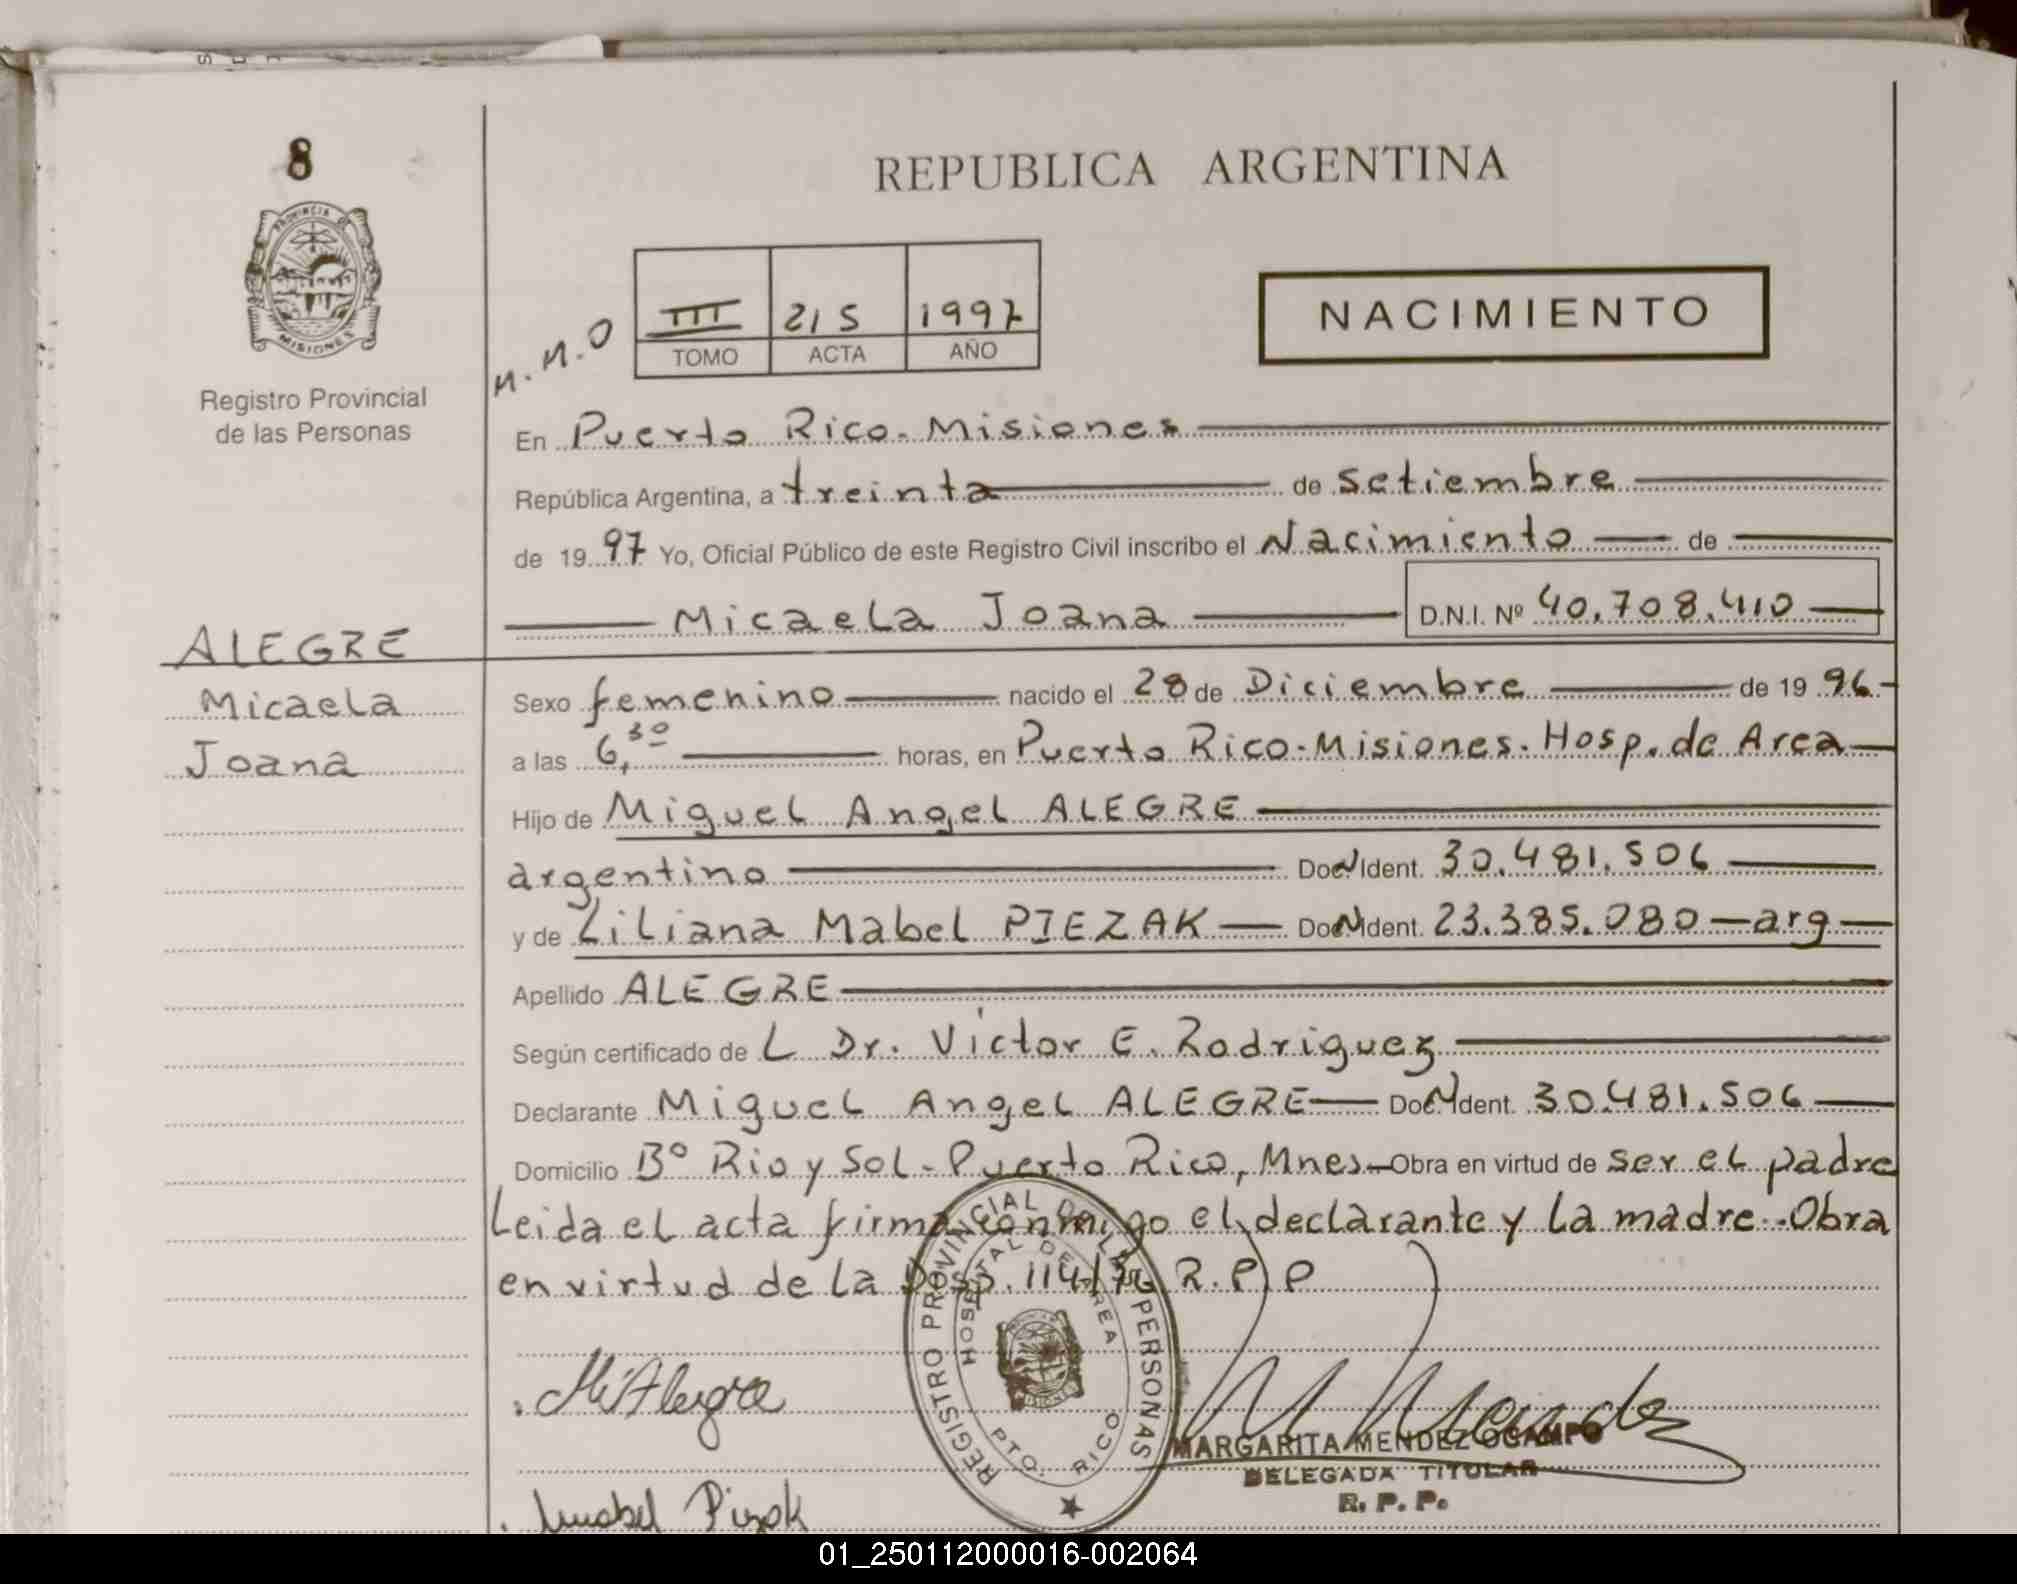 8
PROVINCIA DE
MISIONES
Registro Provincial
de las Personas
REPUBLICA ARGENTINA
III 215 1997
TOMO ACTA AÑO
NACIMIENTO
En Puerto Rico. Misiones
República Argentina, a treinta de Setiembre
de 19 97 Yo, Oficial Público de este Registro Civil inscribo el Nacimiento de
Micaela Joana D.N.I. Nº 40.708.410
ALEGRE
Micaela
Joana
Sexo femenino nacido el 28 de Diciembre de 19 96.-
a las 6,30 horas, en Puerto Rico. Misiones. Hosp. de Area
Hijo de Miguel Angel ALEGRE
argentino Doc N Ident. 30.481.506
y de Liliana Mabel PIEZAK Doc N Ident. 23.385.080 - arg
Apellido ALEGRE
Según certificado de L Dr. Victor E. Rodriguez
Declarante Miguel Angel ALEGRE Doc N Ident. 30.481.506
Domicilio Bº Rio y Sol - Puerto Rico, Mnes - Obra en virtud de ser el padre
Leida el acta firma conmigo el declarante y la madre.-Obra
en virtud de la Disp. R.P.P
REGISTRO PROVINCIAL DE LAS PERSONAS
HOSPITAL DE AREA
PTO. RICO
MARGARITA MENDEZ OCAMPO
DELEGADA TITULAR
R. P. P.
01_250112000016-002064